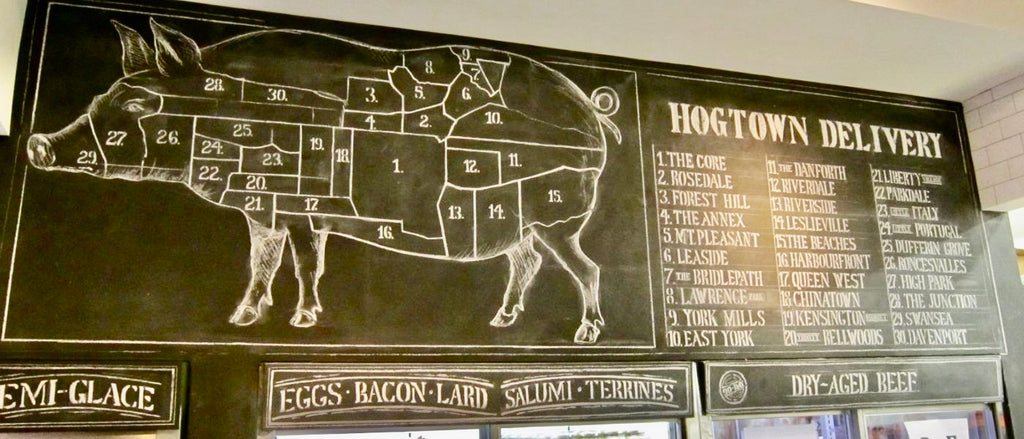 HOGTOWN DELIVERY
1. THE CORE
2. ROSEDALE
3. FOREST HILL
4. THE ANNEX
5. MT. PLEASANT
6. LEASIDE
7. THE BRIDLEPATH
8. LAWRENCE PARK
9. YORK MILLS
10. EAST YORK
11. THE DANFORTH
12. RIVERDALE
13. RIVERSIDE
14. LESLIEVILLE
15. THE BEACHES
16. HARBOURFRONT
17. QUEEN WEST
18. CHINATOWN
19. KENSINGTON MARKET
20. TRINITY BELLWOODS
21. LIBERTY VILLAGE
22. PARKDALE
23. LITTLE ITALY
24. LITTLE PORTUGAL
25. DUFFERIN GROVE
26. RONCESVALLES
27. HIGH PARK
28. THE JUNCTION
29. SWANSEA
30. DAVENPORT
28. 30. 3. 8. 9. 7. 5. 6.
4. 2. 10.
29. 27. 26. 25. 24. 23. 22. 20. 21. 19. 18. 17. 1. 12. 11.
13. 14. 15.
16.
EMI-GLACE
EGGS · BACON · LARD SALUMI · TERRINES
DRY-AGED BEEF